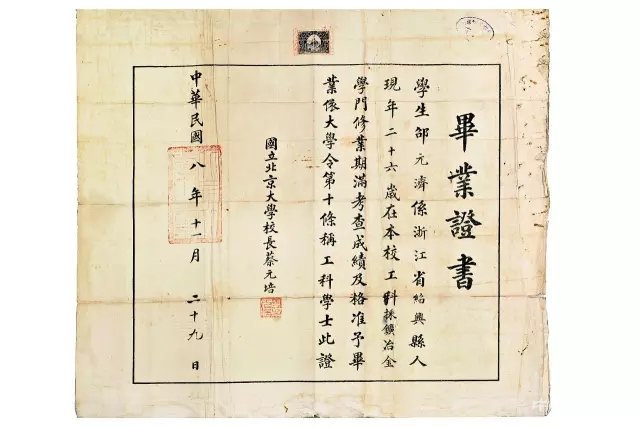 畢業證書
學生邵元濟係浙江省紹興縣人
現年二十六歲在本校工科採鑛冶金
學門修業期滿考查成績及格准予畢
業依大學令第十條稱工科學士此證
國立北京大學校長蔡元培
中華民國八年十一月二十九日